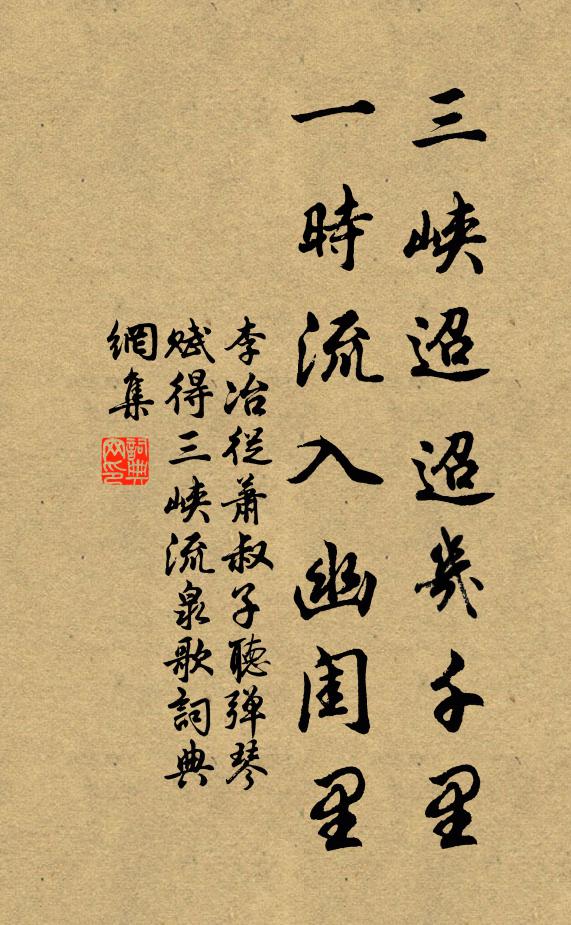 三峽迢迢幾千里
一時流入幽閨里
李冶從蕭叔子聽弹琴
賦得三峽流泉歌詞典
網集
詞典网印